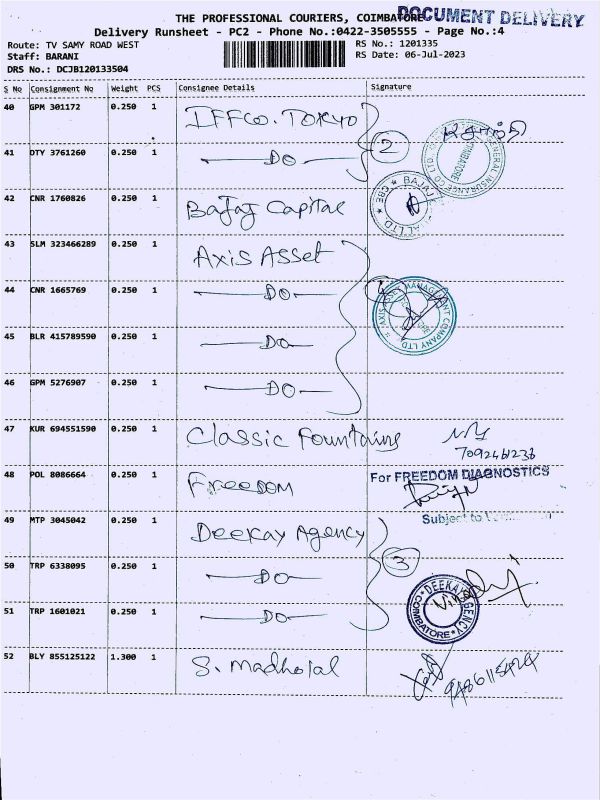 THE PROFESSIONAL COURIERS, COIMBATORE
DOCUMENT DELIVERY
Delivery Runsheet - PC2 - Phone No.:0422-3505555 - Page No.:4
Route: TV SAMY ROAD WEST
RS No.: 1201335
Staff: BARANI
RS Date: 06-Jul-2023
DRS No.: DCJB120133504
S No Consignment No Weight PCS Consignee Details Signature
40 GPM 301172 0.250 1 IFFCO. TOKYO
41 DTY 3761260 0.250 1 —DO— 2
GENERAL INSURANCE CO LTD
42 CNR 1760826 0.250 1 Bajaj Capital
BAJAJ LTD CBE
43 SLM 323466289 0.250 1 Axis Asset
44 CNR 1665769 0.250 1 —DO—
AXIS ASSET MANAGEMENT COMPANY LTD
45 BLR 415789590 0.250 1 —DO—
46 GPM 5276907 0.250 1 —DO—
47 KUR 694551590 0.250 1 Classic Fountains
7092461236
48 POL 8086664 0.250 1 Freedom
For FREEDOM DIAGNOSTICS
Subject to
49 MTP 3045042 0.250 1 Deekay Agency
50 TRP 6338095 0.250 1 —DO— 3
51 TRP 1601021 0.250 1 —DO—
DEEKAY AGENCY COIMBATORE
52 BLY 855125122 1.300 1 S. Madholal